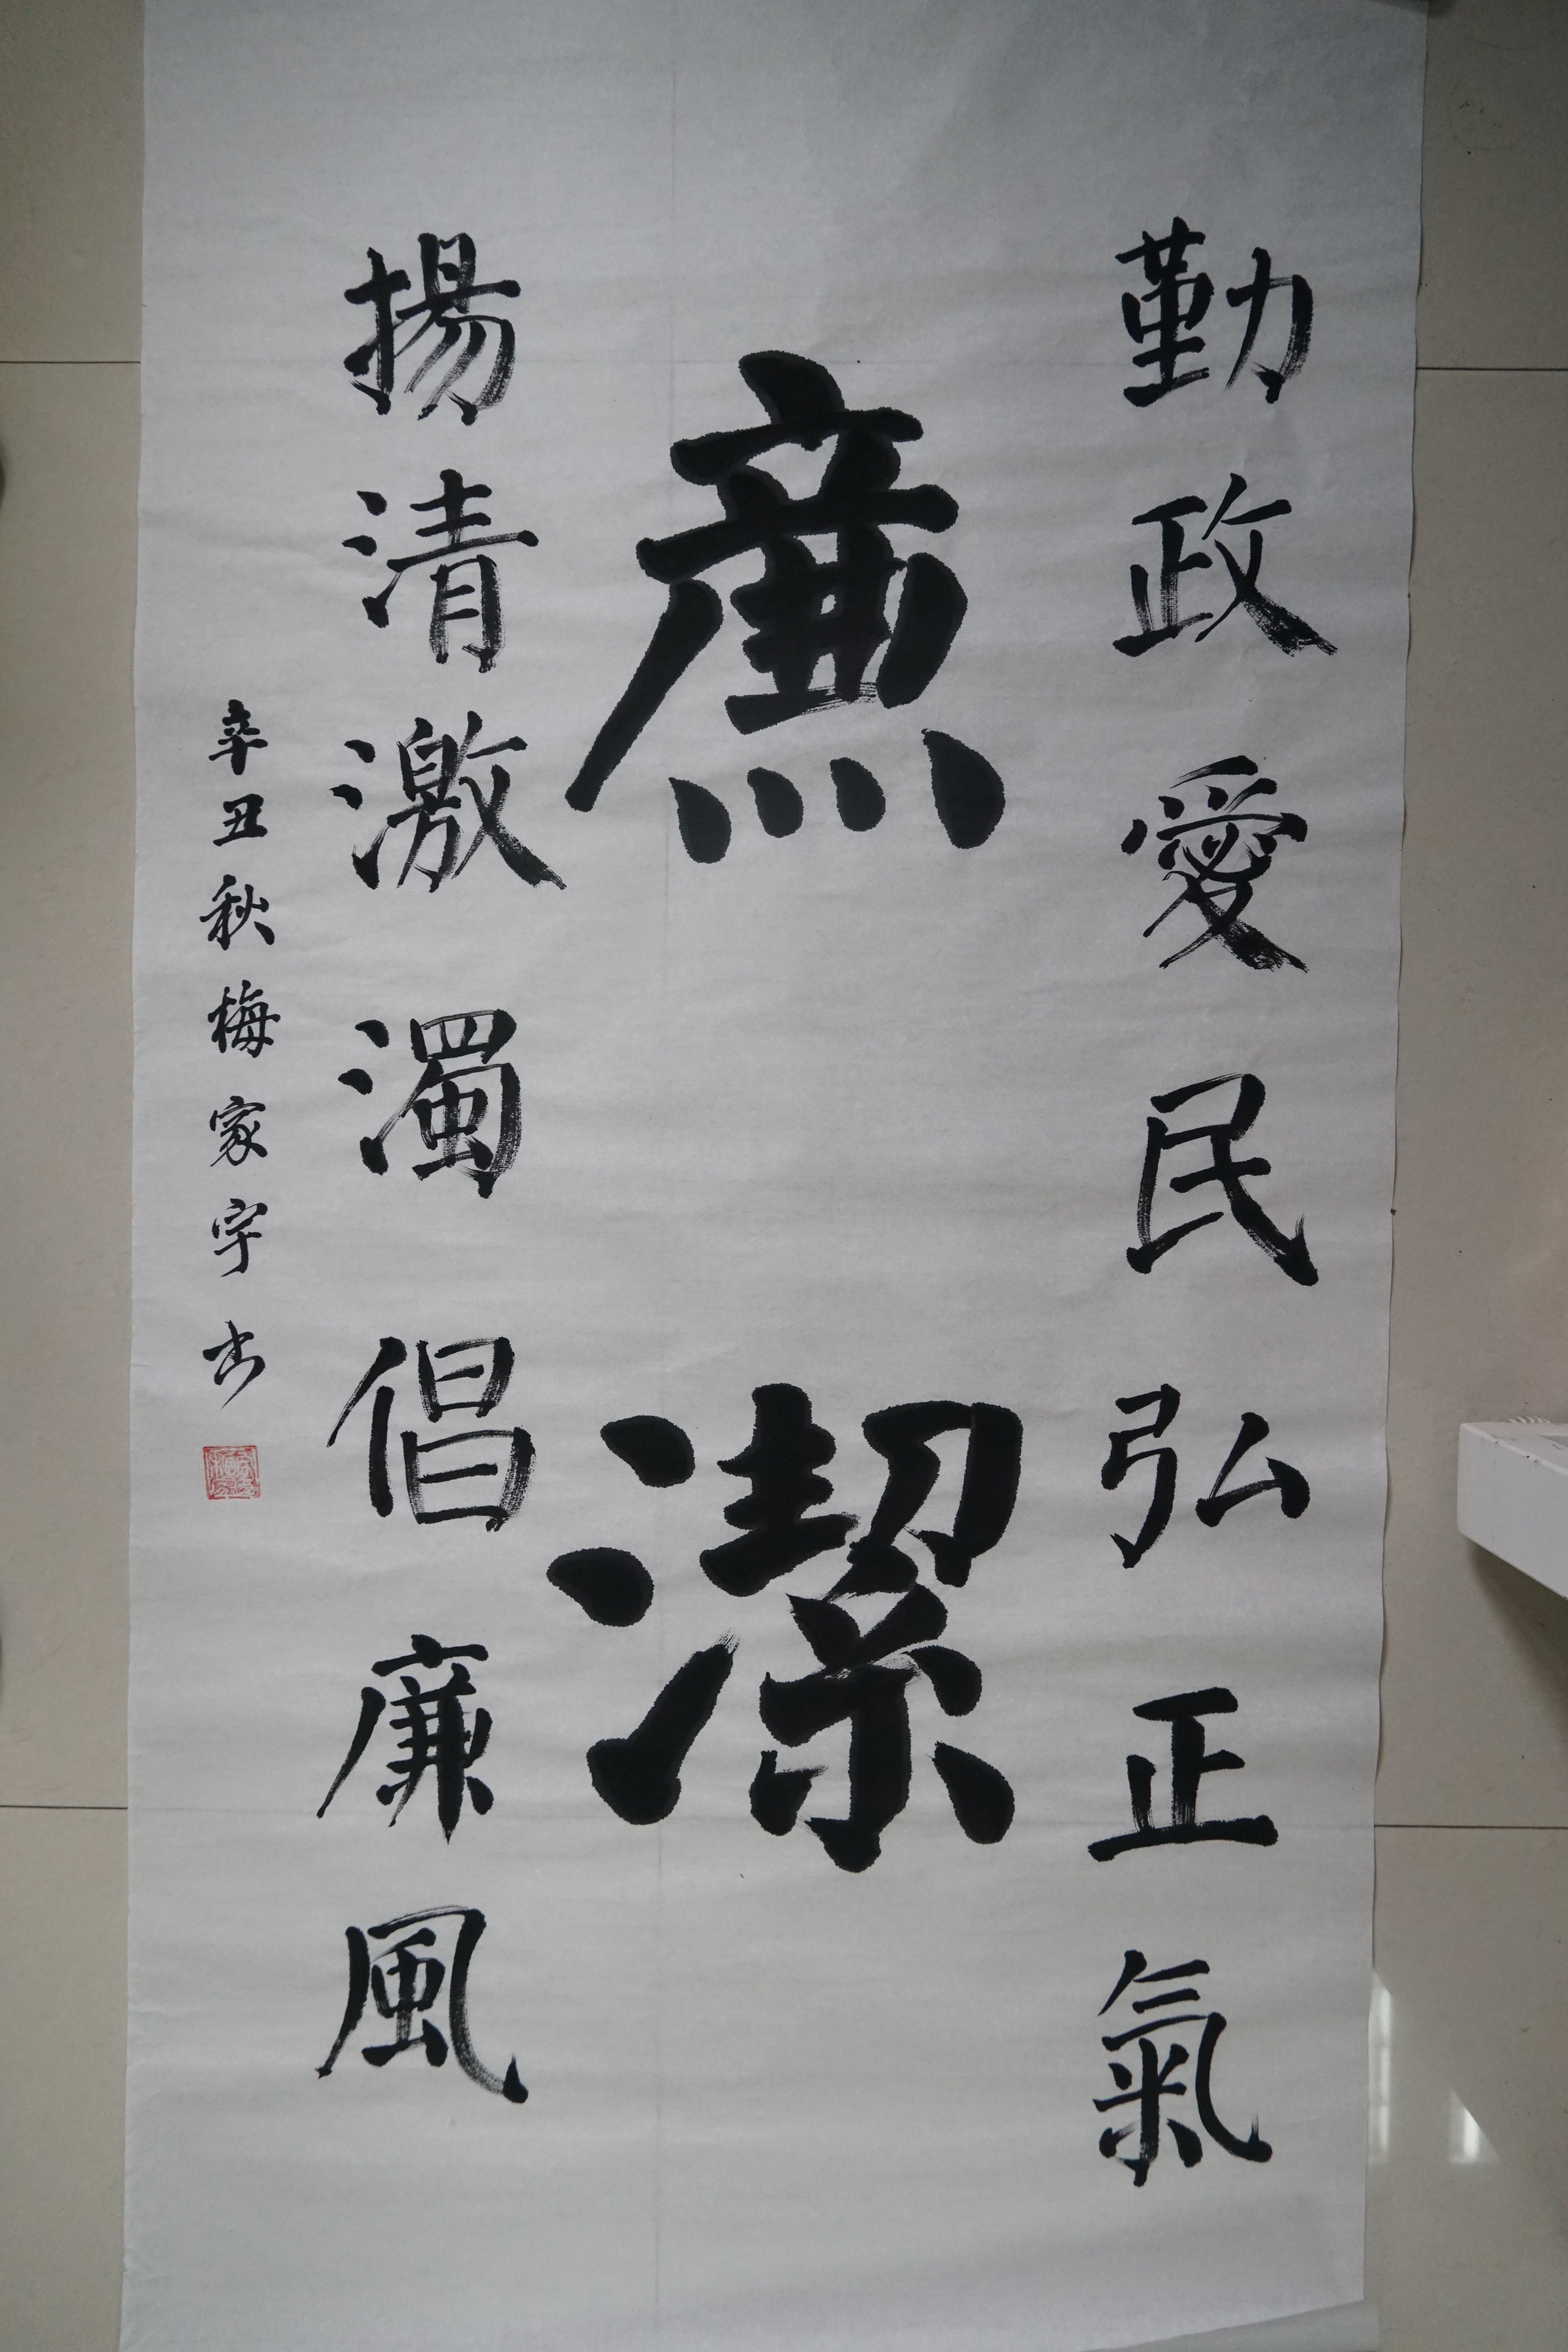 勤政愛民弘正氣
廉潔
揚清激濁倡廉風
辛丑秋梅家宇书